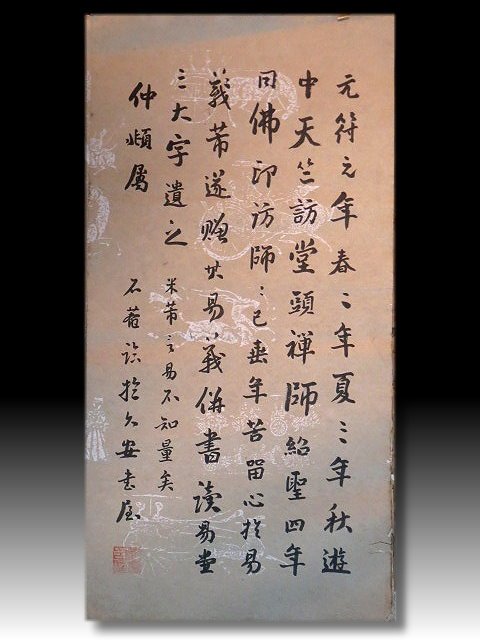 元符元年春二年夏三年秋遊
中天竺訪堂頭禪師紹聖四年
同佛印訪師〻已垂年苦留心於易
義芾遂贈其易義併書讀易堂
三大字遺之 米芾言易不知量矣
仲頫屬 石菴臨於久安書屋